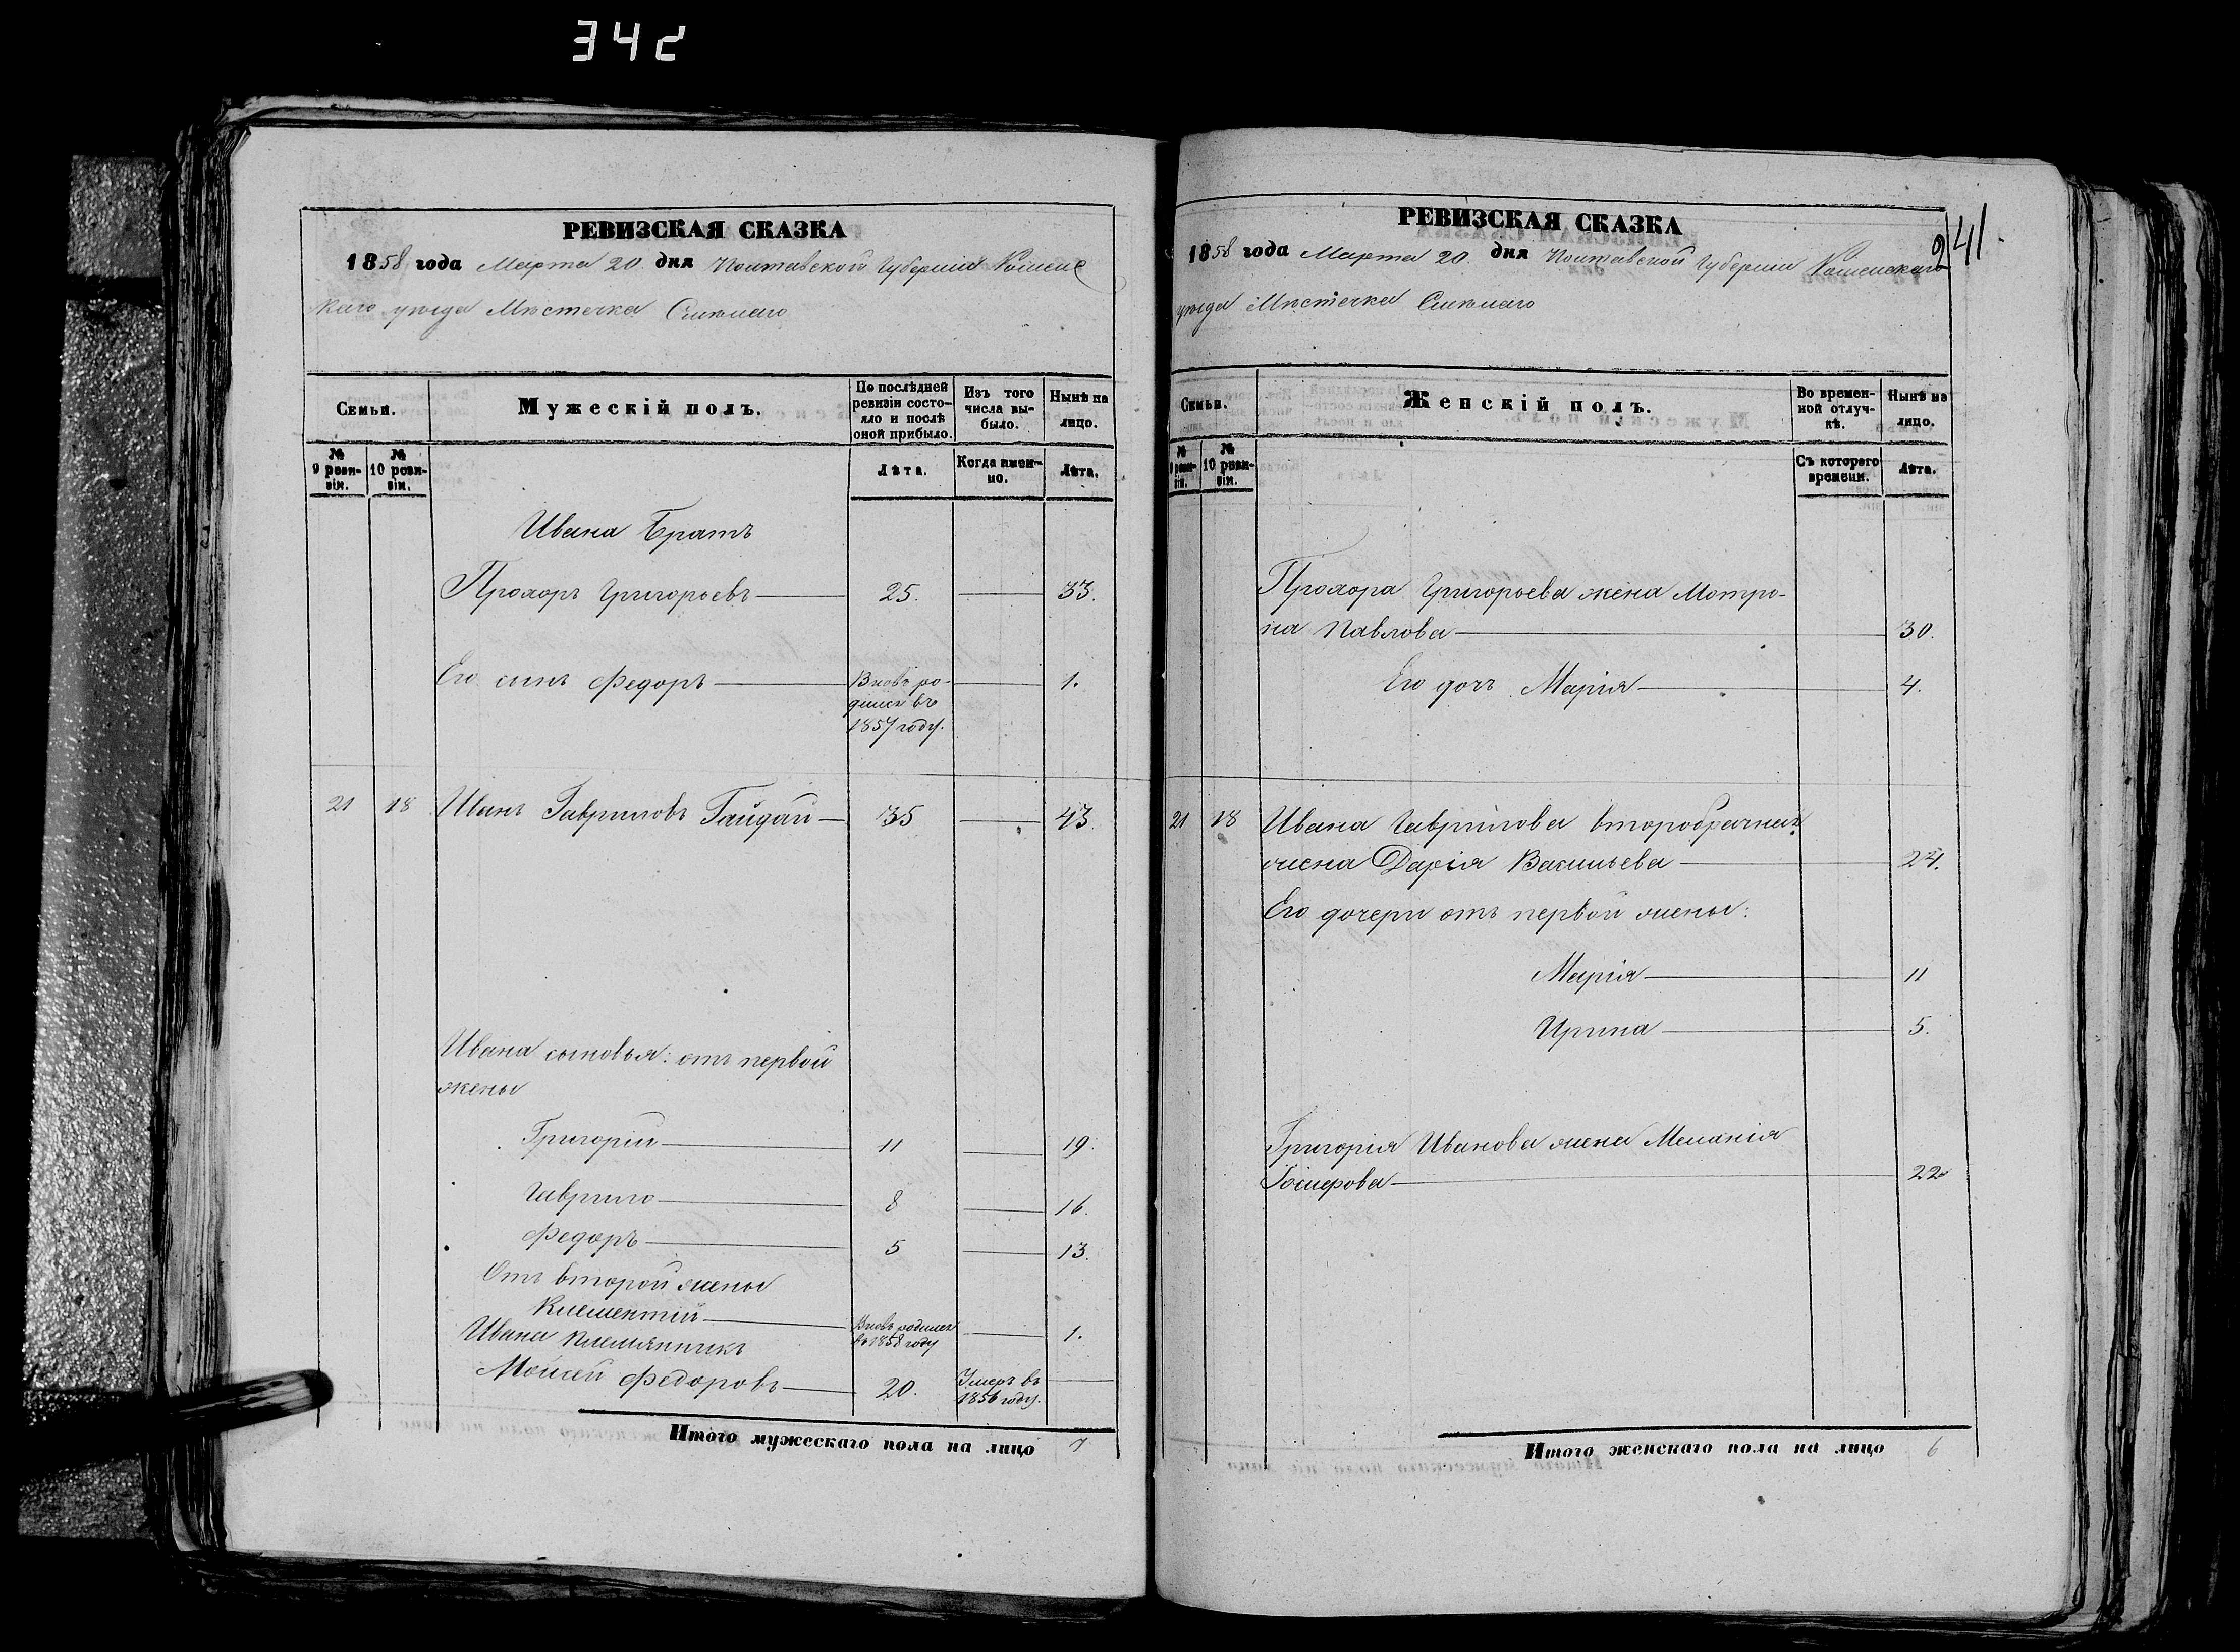 342
РЕВИЗСКАЯ СКАЗКА
1858 года Марта 20 дня Полтавской Губерніи Роменс
каго уѣзда Мѣстечка Смѣлаго
Семьи.
Мужескій полъ.
По послѣдней ревизіи состояло и послѣ оной прибыло.
Изъ того числа выбыло.
Нынѣ на лицо.
№ 9 ревизіи.
№ 10 ревизіи.
Лѣта.
Когда именно.
Лѣта.
Ивана Братъ
Прохоръ Григорьевъ 25. 33.
Его сынъ Федоръ Вновь ро- 1.
дился въ
1857 году.
21 18 Иванъ Гавриловъ Гайдай 35 43.
Ивана сыновья: отъ первой
жены
Григорій 11 19.
Гаврило 8 16.
Федоръ 5 13.
Отъ второй жены
Климентій Вновь родился 1.
въ 1858 году
Ивана племянникъ
Мойсей Федоровъ 20. Умеръ въ
1856 году.
Итого мужескаго пола на лицо 7
241
РЕВИЗСКАЯ СКАЗКА
1858 года Марта 20 дня Полтавской Губерніи Роменскаго
уѣзда Мѣстечка Смѣлаго
Семьи.
Женскій полъ.
Во временной отлучкѣ.
Нынѣ на лицо.
№ 9 ревизіи.
№ 10 ревизіи.
Съ котораго времени.
Лѣта.
Прохора Григорьева жена Мотро-
на Павлова 30.
Его дочь Марія 4.
21 18 Ивана Гаврилова второбрачная
жена Дарія Васильева 24.
Его дочери отъ первой жены:
Марія 11
Ирина 5.
Григорія Иванова жена Меланія
22
Итого женскаго пола на лицо 6